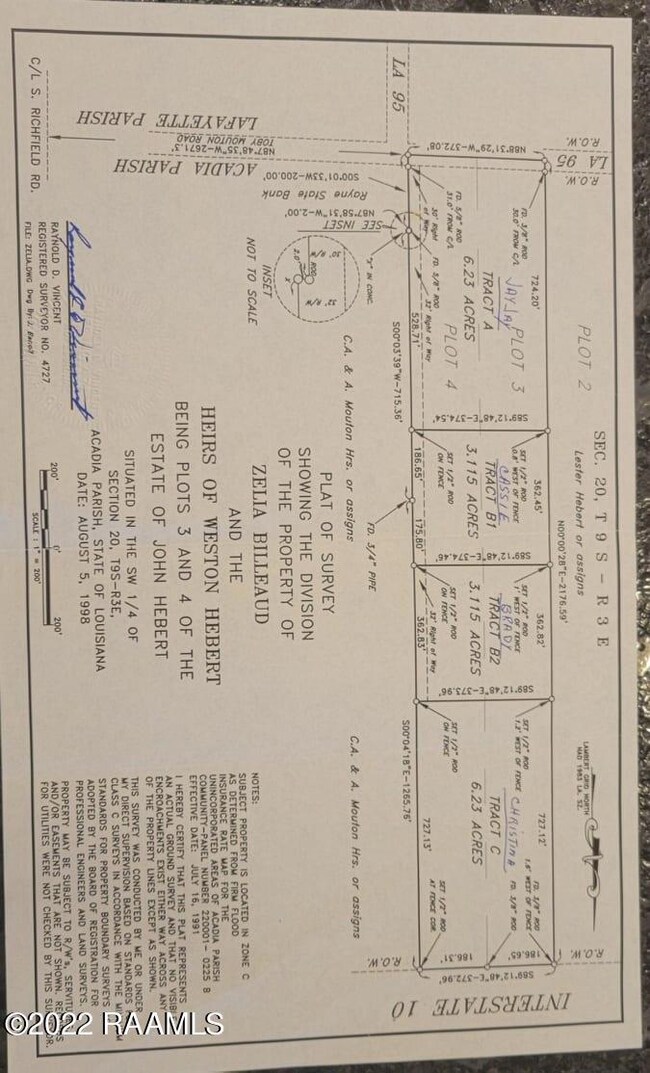 SEC. 20, T9S - R3E
PLOT 2
Lester Hebert or assigns
N00°00'28"E-2176.59'
LAMBERT GRID NORTH
NAD 1983 LA. SZ.
LA 95
R.O.W.
R.O.W.
LA 95
N88°31'29"W-372.08'
FD. 5/8" ROD
30.0' FROM C/L
FD. 5/8" ROD
31.0' FROM C/L
724.20'
PLOT 3
JAYLA
TRACT A
6.23 ACRES
PLOT 4
30' Right
of Way
FD. 5/8" ROD
32' Right of Way
528.71'
S00°03'39"W-715.36'
S89°12'48"E-374.54'
SET 1/2" ROD
0.8' WEST OF FENCE
SET 1/2" ROD
ON FENCE
362.45'
CASSIE
TRACT B1
3.115 ACRES
186.65'
175.80'
FD. 3/4" PIPE
S89°12'48"E-374.46'
SET 1/2" ROD
1' WEST OF FENCE
SET 1/2" ROD
ON FENCE
362.82'
BRADY
TRACT B2
3.115 ACRES
32' Right of Way
362.83'
S89°12'48"E-373.96'
SET 1/2" ROD
1.3' WEST OF FENCE
SET 1/2" ROD
ON FENCE
727.12'
CHRISTINA
TRACT C
6.23 ACRES
727.13'
S00°04'18"E-1265.76'
FD. 3/8" ROD
1.6' WEST OF FENCE
FD. 3/8" ROD
SET 1/2" ROD
AT FENCE COR.
186.65'
186.31'
S89°12'48"E-372.96'
R.O.W.
R.O.W.
INTERSTATE 10
C/L S. RICHFIELD RD.
LAFAYETTE PARISH
TOBY MOUTON ROAD
N87°48'35"W-2671.3'
ACADIA PARISH
S00°01'33W-200.00'
Rayne State Bank
N87°58'31"W-2.00'
SEE INSET
"X" IN CONC.
30' R/W
32' R/W
ROD
2.0'
X
INSET
NOT TO SCALE
C.A. & A. Mouton Hrs. or assigns
C.A. & A. Mouton Hrs. or assigns
PLAT OF SURVEY
SHOWING THE DIVISION
OF THE PROPERTY OF
ZELIA BILLEAUD
AND THE
HEIRS OF WESTON HEBERT
BEING PLOTS 3 AND 4 OF THE
ESTATE OF JOHN HEBERT
SITUATED IN THE SW 1/4 OF
SECTION 20, T9S-R3E,
ACADIA PARISH, STATE OF LOUISIANA
DATE: AUGUST 5, 1998
200' 0' 200'
SCALE : 1" = 200'
RAYNOLD D. VINCENT
REGISTERED SURVEYOR NO. 4727
FILE: ZELIA.DWG
NOTES:
SUBJECT PROPERTY IS LOCATED IN ZONE C
AS DETERMINED FROM FIRM FLOOD
INSURANCE RATE MAP FOR THE
UNINCORPORATED AREAS OF ACADIA PARISH
COMMUNITY-PANEL NUMBER 220001- 0225 B
EFFECTIVE DATE: JULY 16, 1991
I HEREBY CERTIFY THAT THIS PLAT REPRESENTS
AN ACTUAL GROUND SURVEY AND THAT NO VISIBLE
ENCROACHMENTS EXIST EITHER WAY ACROSS ANY
OF THE PROPERTY LINES EXCEPT AS SHOWN.
THIS SURVEY WAS CONDUCTED BY ME OR UNDER
MY DIRECT SUPERVISION BASED ON STANDARDS
CLASS C SURVEYS IN ACCORDANCE WITH THE
STANDARDS FOR PROPERTY BOUNDARY SURVEYS
ADOPTED BY THE BOARD OF REGISTRATION FOR
PROFESSIONAL ENGINEERS AND LAND SURVEYORS.
PROPERTY MAY BE SUBJECT TO R/W'S, SERVITU
AND/OR EASEMENTS THAT ARE NOT SHOWN.
FOR UTILITIES WERE NOT CHECKED BY THIS
©2022 RAAMLS